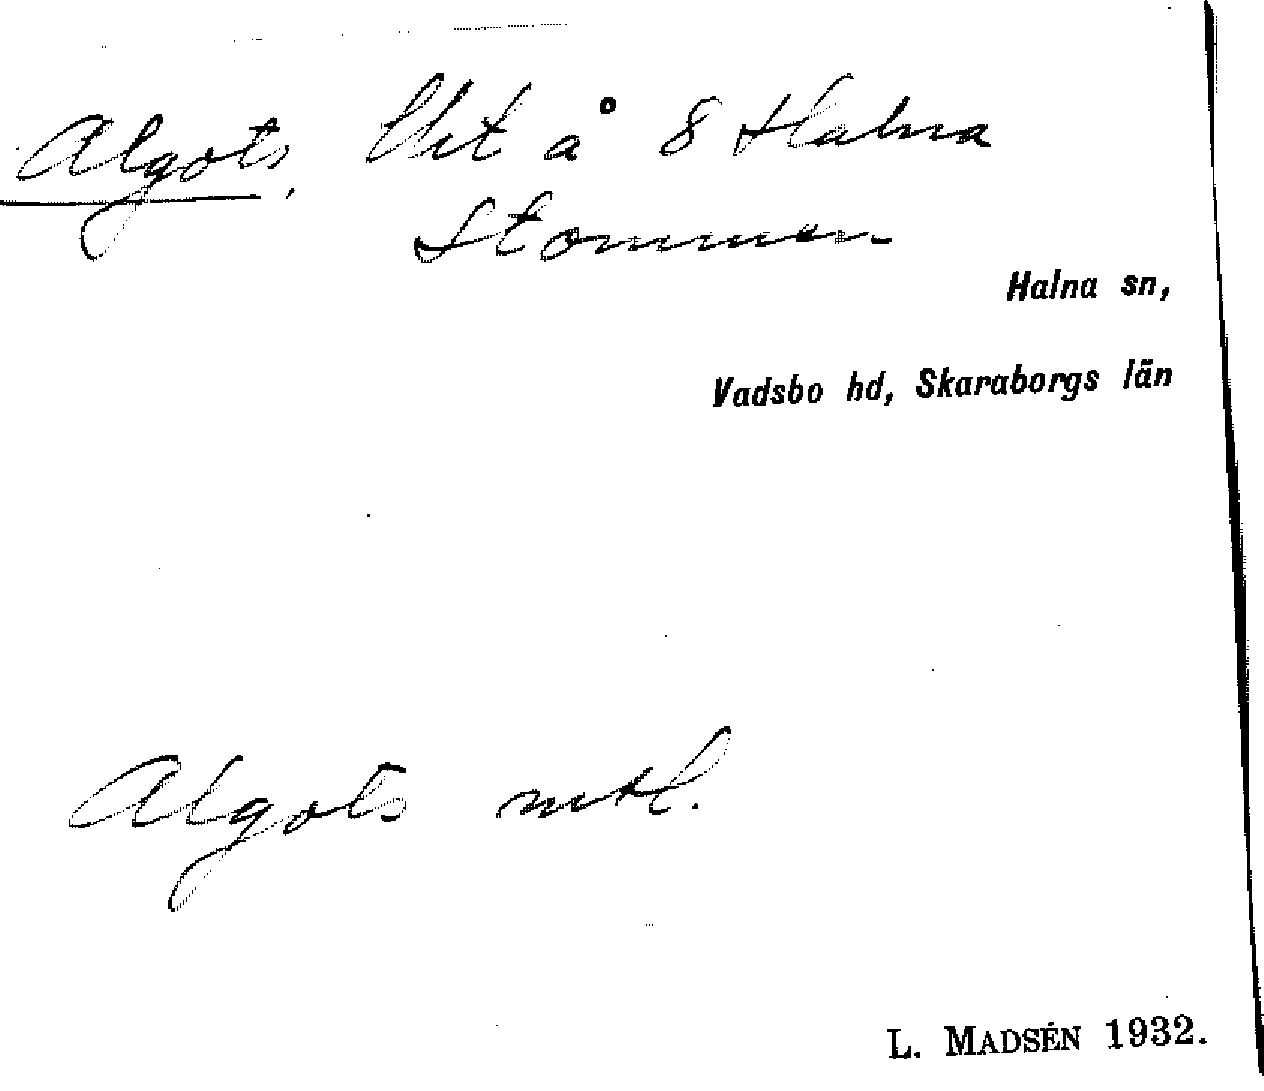 Algots, Uet å 8 Halna
Stommen
Halna sn,
Vadsbo hd, Skaraborgs län
Algots mtl.
L. MADSÉN 1932.